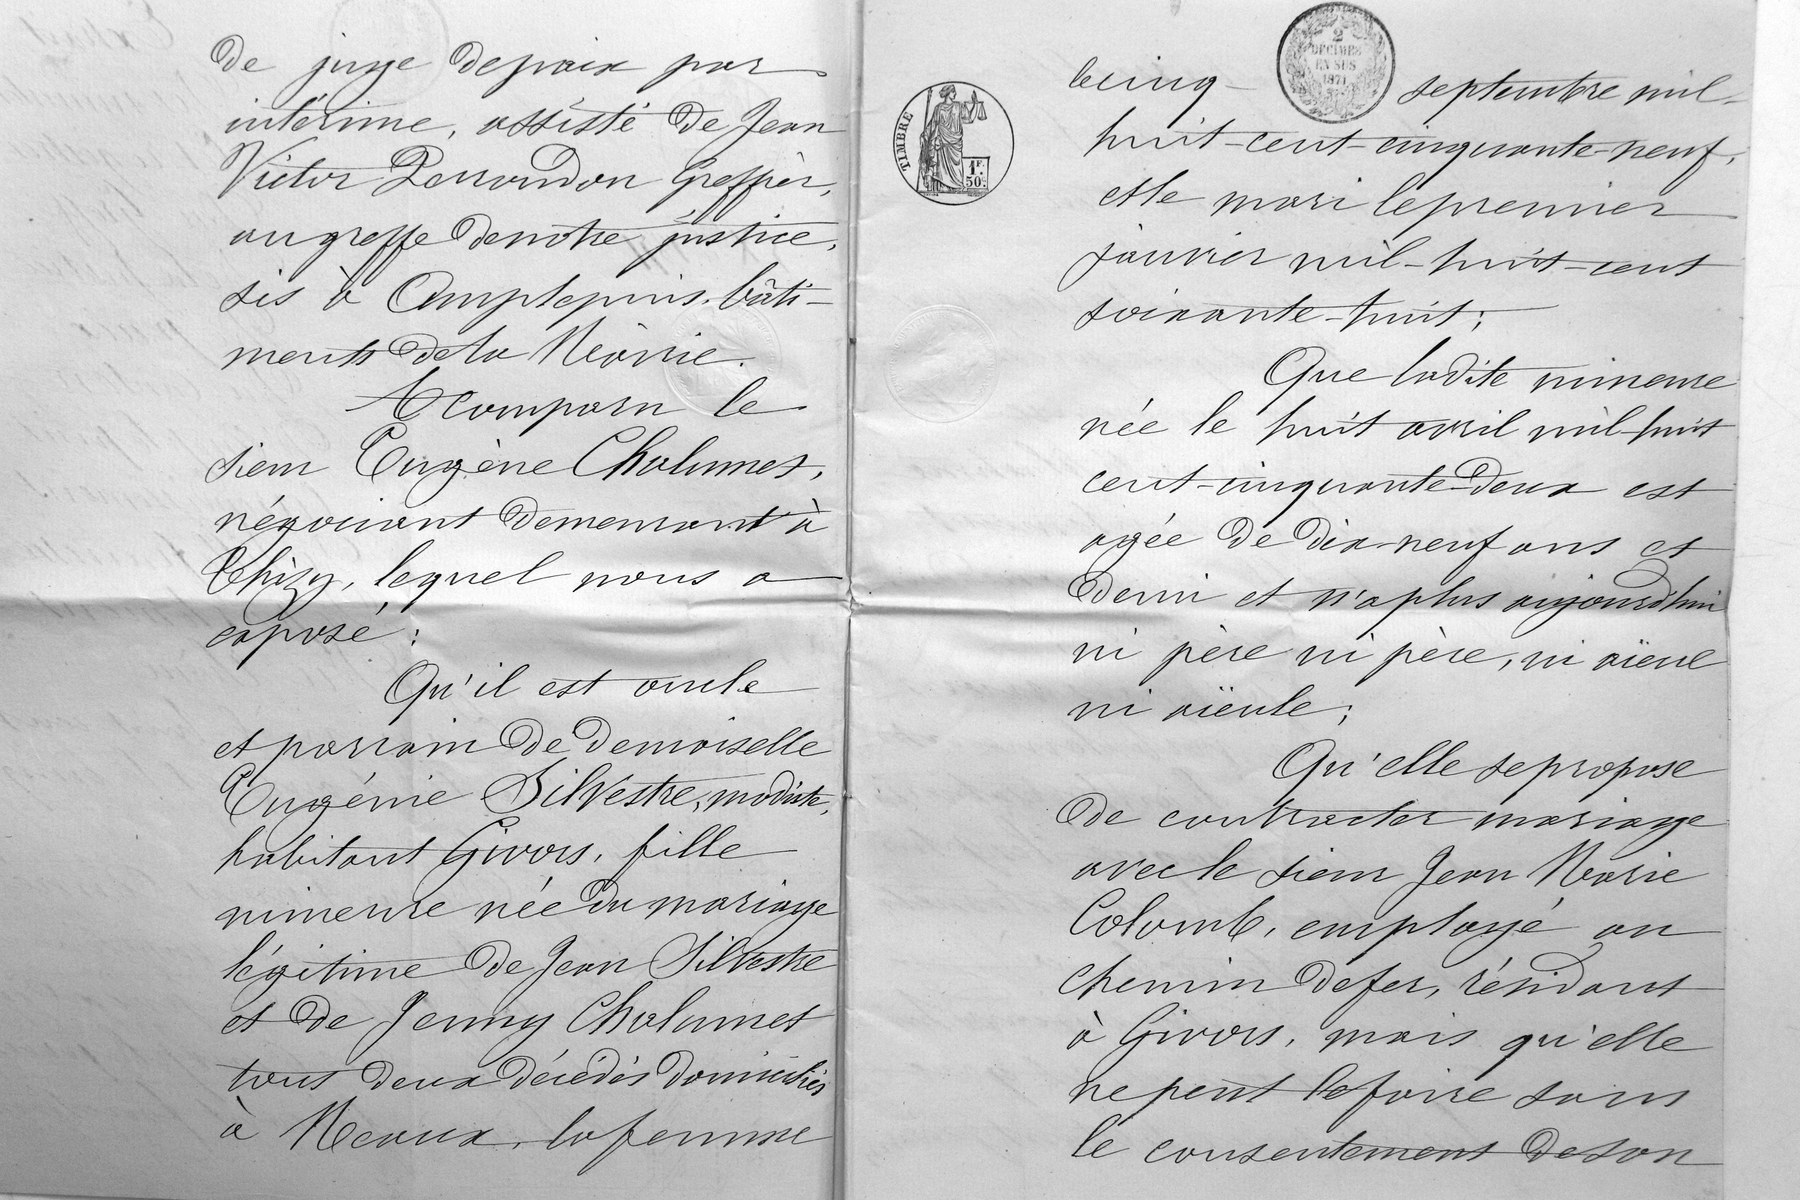 de juge de paix par
intérime, assisté de Jean
Victor Perrondon Greffier,
au greffe de notre justice,
sis à Amplepuis, bâti-
ments de la Mairie.
A comparu le
sieur Eugène Chalumet,
négociant demeurant à
Thizy, lequel nous a
exposé :
Qu'il est oncle
et parrain de demoiselle
Eugénie Silvestre, modiste,
habitant Givors, fille
mineure née du mariage
légitime de Jean Silvestre
et de Jenny Chalumet
tous deux décédés domiciliés
à Meaux, la femme
le cinq septembre mil-
huit-cent-cinquante-neuf,
et le mari le premier
janvier mil-huit-cent
soixante-huit;
Que ladite mineure
née le huit avril mil-huit
cent-cinquante-deux est
agée de dix-neuf ans et
demi et n'a plus aujourd'hui
ni père ni père, ni aïeul
ni aïeule;
Qu'elle se propose
de contracter mariage
avec le sieur Jean Marie
Colomb, employé au
chemin de fer, résidant
à Givors, mais qu'elle
ne peut le faire sans
le consentement de son
TIMBRE
1 F.
50 c.
2
DÉCIMES
EN SUS
1871